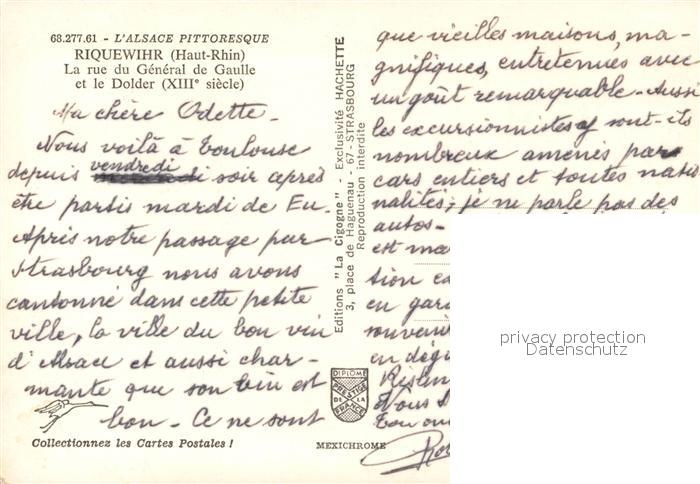 68.277.61 - L'ALSACE PITTORESQUE
RIQUEWIHR (Haut-Rhin)
La rue du Général de Gaulle
et le Dolder (XIIIe siècle)
Ma chère Odette -
Nous voilà à Toulouse
depuis vendredi soir après
être partis mardi de Eu.
Après notre passage par
Strasbourg nous avons
cantonné dans cette petite
ville, la ville du bon vin
d'Alsace et aussi char-
mante que son vin est
bon - Ce ne sont
Collectionnez les Cartes Postales !
Editions "La Cigogne" - Exclusivité HACHETTE
3, place de Haguenau - 67-STRASBOURG
Reproduction interdite
DIPLOME
PRESTIGE
DE LA
FRANCE
MEXICHROME
que vieilles maisons, ma-
gnifiques, entretenues avec
un goût remarquable - Aussi
les excursionnistes y sont-ils
nombreux amenés par
cars entiers et toutes natio
nalités; je ne parle pas des
autos -
est
tion
en
souvenir
en
Nous
privacy protection
Datenschutz